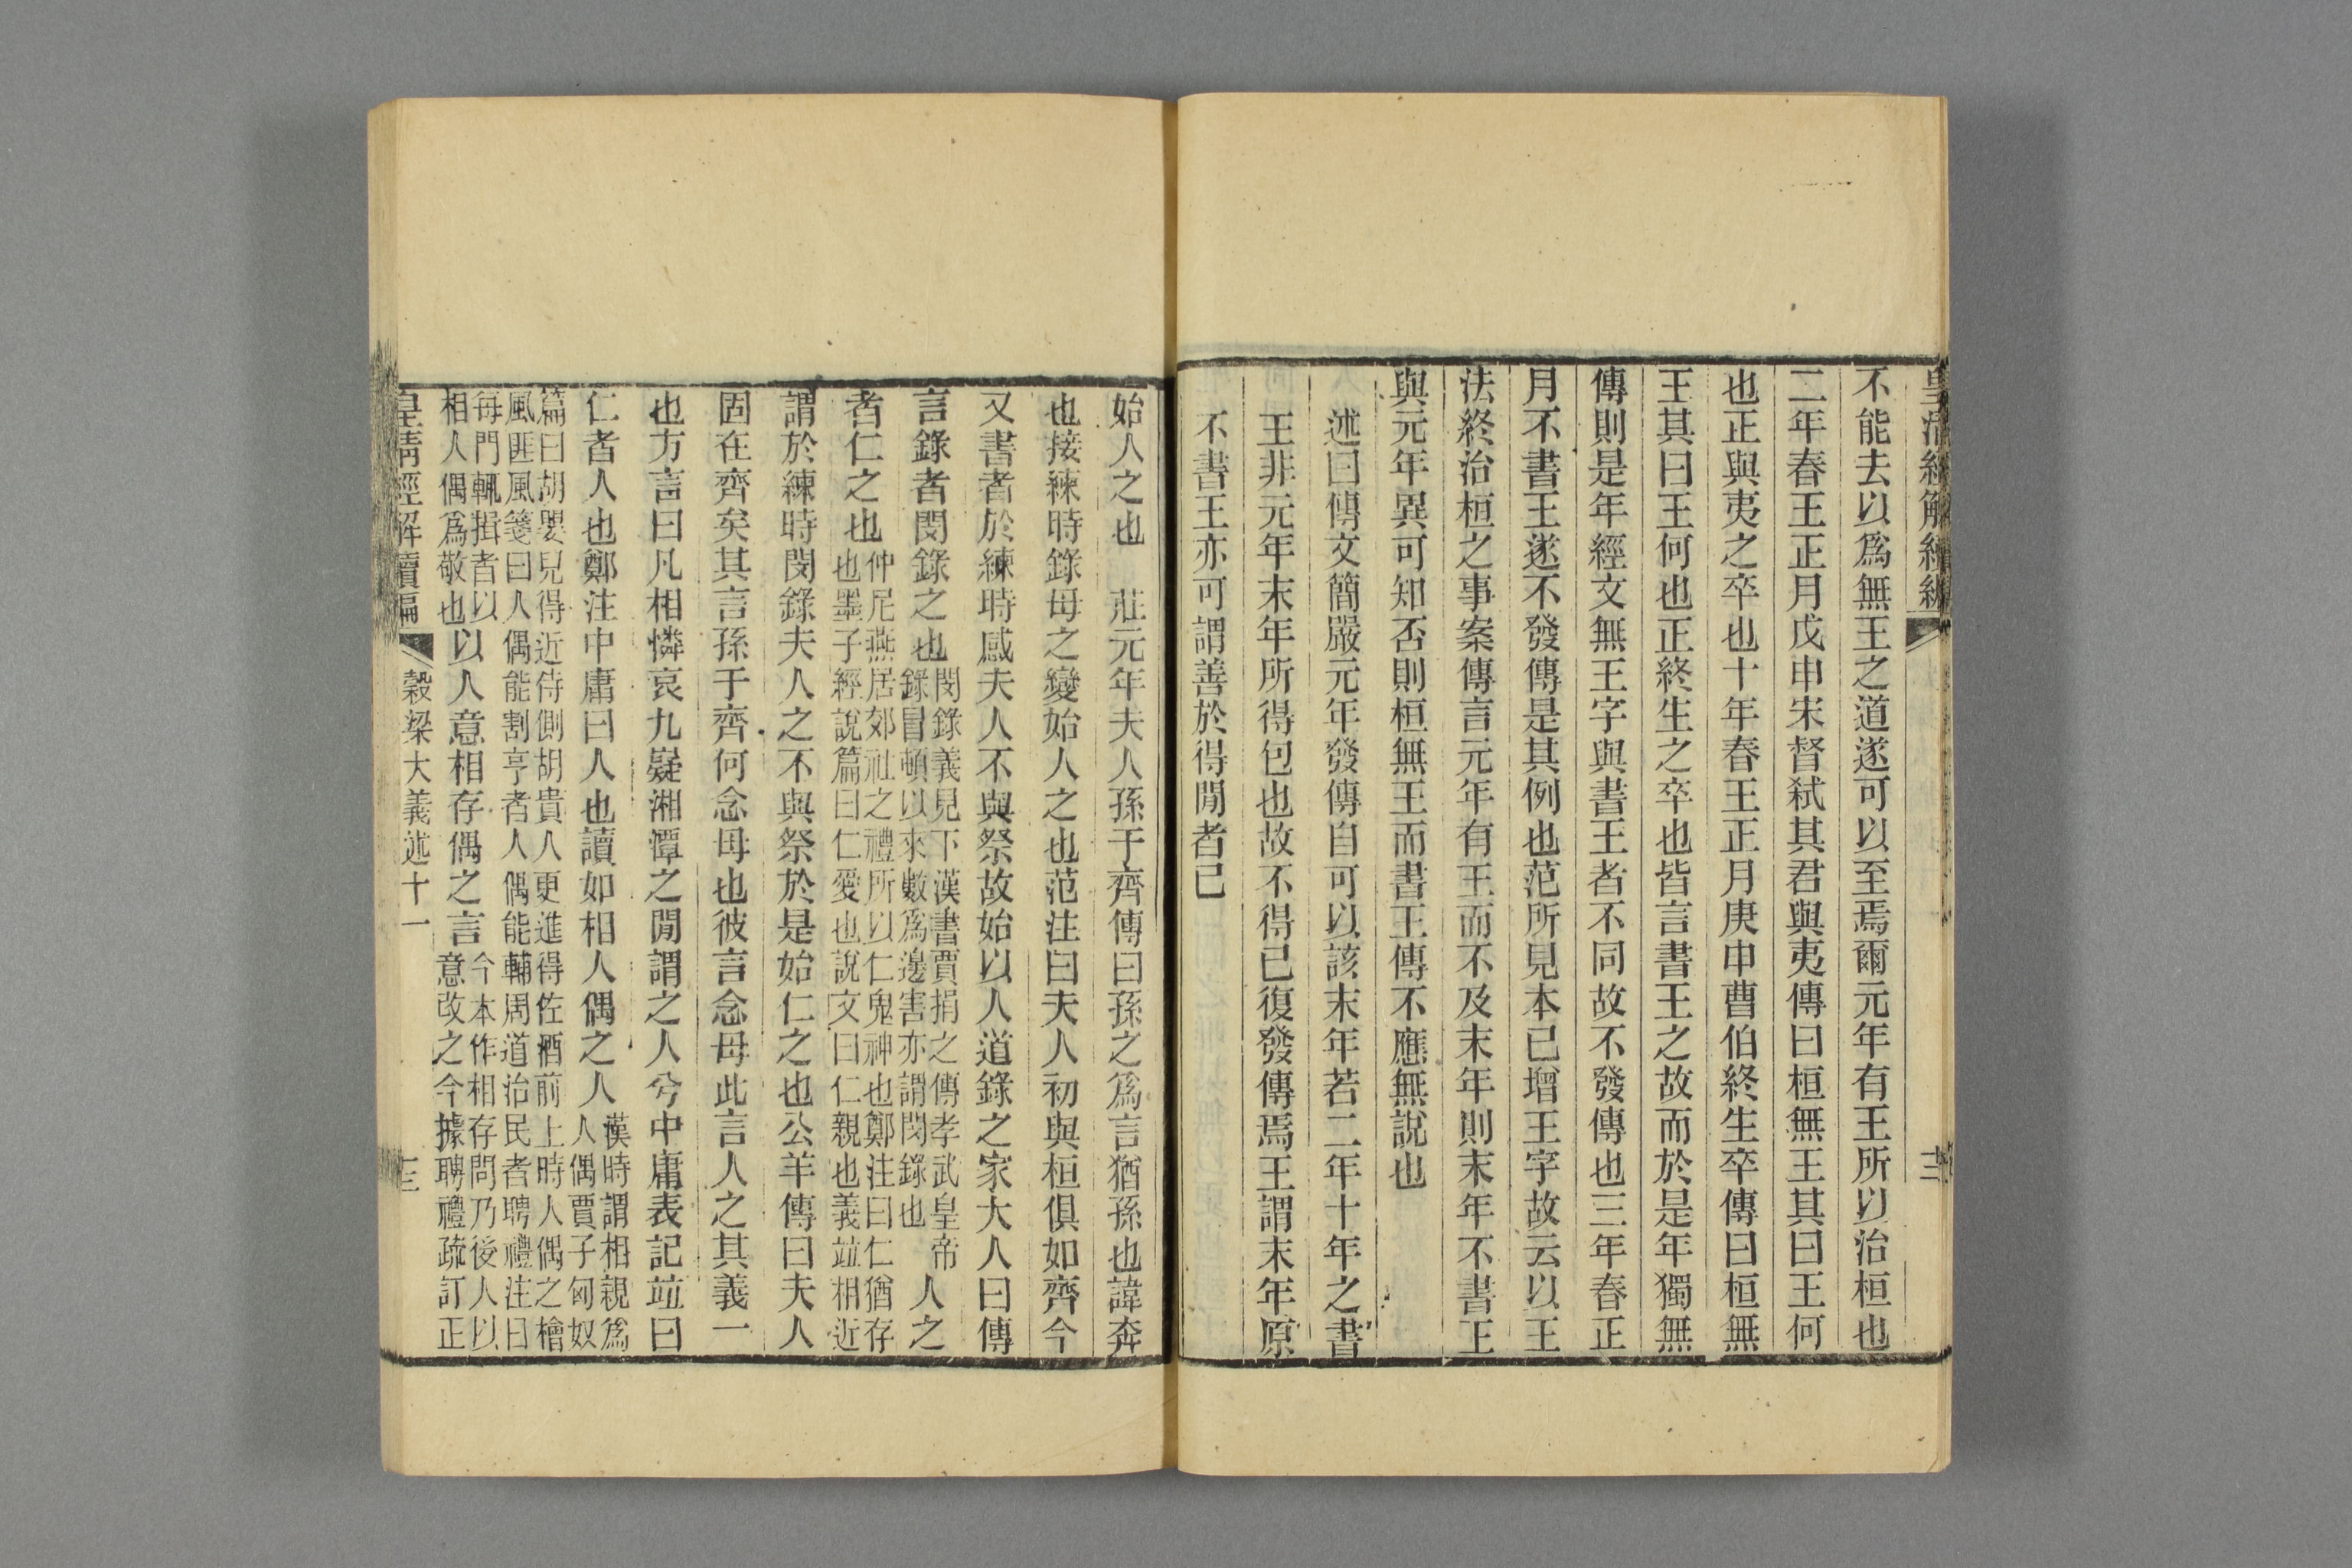 皇清經解續編
不能去以爲無王之道遂可以至焉爾元年有王所以治桓也
二年春王正月戊申宋督弒其君與夷傳曰桓無王其曰王何
也正與夷之卒也十年春王正月庚申曹伯終生卒傳曰桓無
王其曰王何也正終生之卒也皆言書王之故而於是年獨無
傳則是年經文無王字與書王者不同故不發傳也三年春正
月不書王遂不發傳是其例也范所見本已增王字故云以王
法終治桓之事案傳言元年有王而不及末年則末年不書王
與元年異可知否則桓無王而書王傳不應無說也
述曰傳文簡嚴元年發傳自可以該末年若二年十年之書
王非元年末年所得包也故不得已復發傳焉王謂末年原
不書王亦可謂善於得閒者已
始人之也　莊元年夫人孫于齊傳曰孫之爲言猶孫也諱奔
也接練時錄母之變始人之也范注曰夫人初與桓俱如齊今
又書者於練時感夫人不與祭故始以人道錄之家大人曰傳
言錄者閔錄之也閔錄義見下漢書賈捐之傳孝武皇帝
錄冒頓以來數爲邊害亦謂閔錄也人之
者仁之也仲尼燕居郊社之禮所以仁鬼神也鄭注曰仁猶存
也墨子經說篇曰仁愛也說文曰仁親也義竝相近
謂於練時閔錄夫人之不與祭於是始仁之也公羊傳曰夫人
固在齊矣其言孫于齊何念母也彼言念母此言人之其義一
也方言曰凡相憐哀九嶷湘潭之閒謂之人兮中庸表記竝曰
仁者人也鄭注中庸曰人也讀如相人偶之人漢時謂相親爲
人偶賈子匈奴
篇曰胡嬰兒得近侍側胡貴人更進得佐酒前上時人偶之檜
風匪風箋曰人偶能割亨者人偶能輔周道治民者聘禮注曰
每門輒揖者以
相人偶爲敬也以人意相存偶之言今本作相存問乃後人以
意改之今據聘禮疏訂正
皇清經解續編　穀梁大義述十一　三